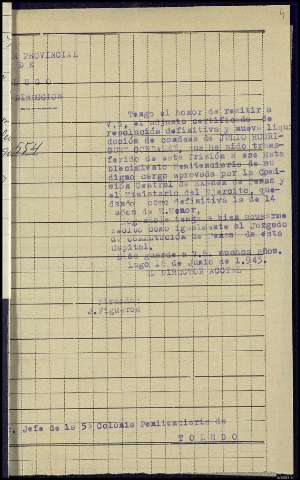 4
PROVINCIAL
DE
LUGO
DIRECCION
554
Tengo el honor de remitir a
V.S. el adjunto certificado de
resolución definitiva y nueva liqui
dación de condena de JULIO RODRI
GUEZ GONZALEZ, que ha sido trans-
ferido de esta Prisión a ese Esta
blecimiento Penitenciario de su
digno cargo aprovada por la Comi-
sión Central de Examen de Penas y
el Ministerio del Ejercito, que-
dando como definitiva la de 14
años de R.Menor.
tenga a bien acusarme
recibo como igualmente al Juzgado
de Conmutación de Penas de esta
Capital.
Dios guarde a V.S. muchos años.
Lugo 1 de Junio de 1.943.
EL DIRECTOR ACCTAL
Firmado:
J. Figueroa
Jefe de la 5ª Colonia Penitenciaria de
TOLEDO